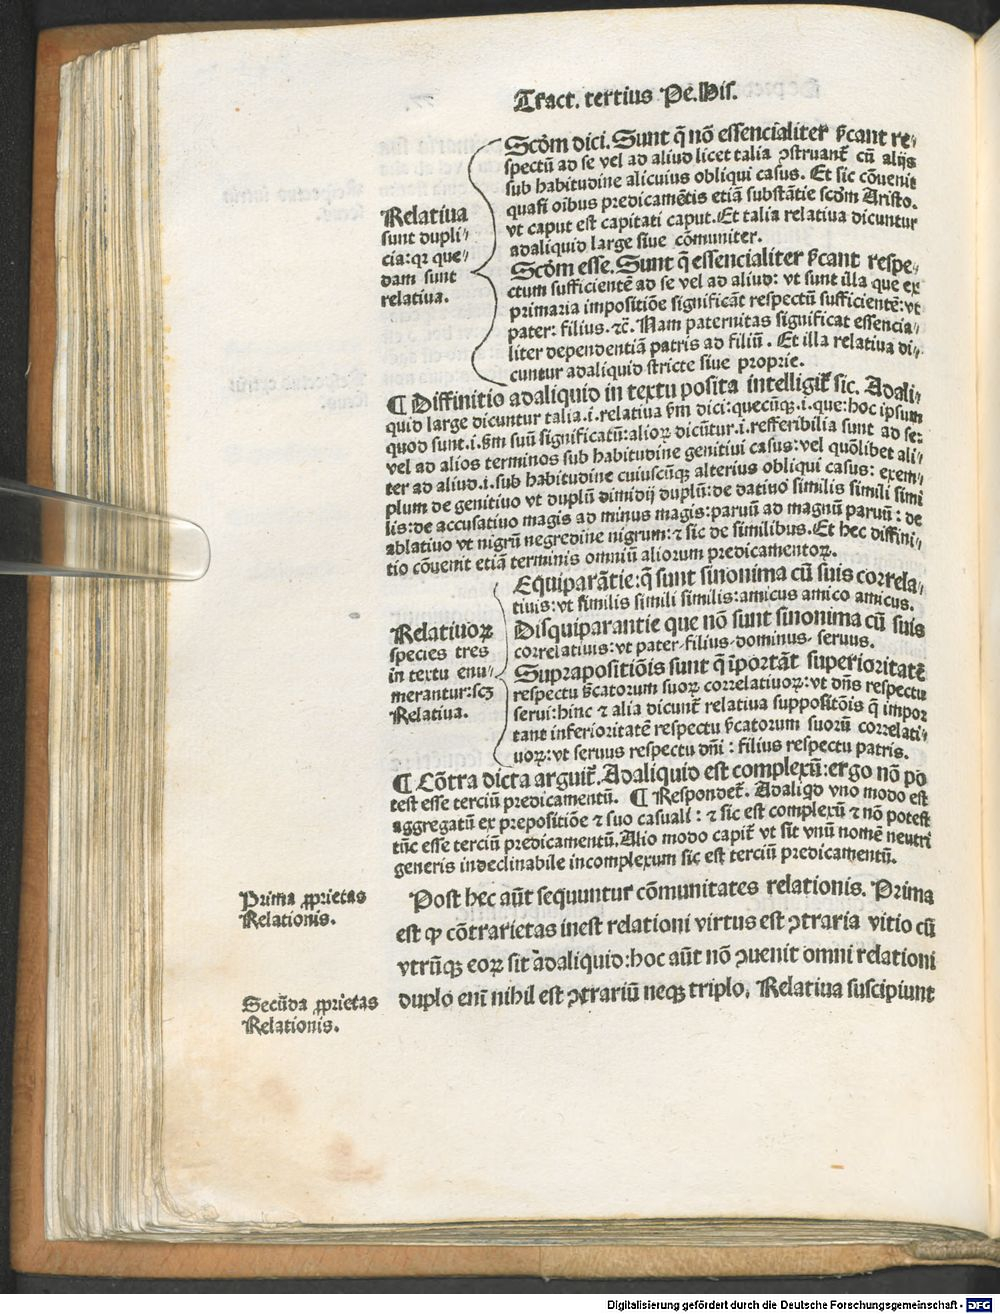 Tract. tertius Pe. His.
Relatiua
sunt dupli⸗
cia: qꝛ que⸗
dam sunt
relatiua.
Scd̄m dici. Sunt q̄ nō essencialiter p̄cant re⸗
spectū ad se vel ad aliud licet talia ꝯstruant᷑ cū alijs
sub habitudine alicuius obliqui casus. Et sic cōuenit
quasi oībus predicamētis etiā substātie scd̄m Aristo.
vt caput est capitati caput. Et talia relatiua dicuntur
adaliquid large siue cōmuniter.
Scd̄m esse. Sunt q̄ essencialiter p̄cant respe⸗
ctum sufficientē ad se vel ad aliud: vt sunt illa que ex
primaria impositiōe significāt respectū sufficientē: vt
pater: filius. ⁊c̄. Nam paternitas significat essencia⸗
liter dependentiā patris ad filiū. Et illa relatiua di⸗
cuntur adaliquid stricte siue proprie.
¶ Diffinitio adaliquid in textu posita intelligit᷑ sic. Adali⸗
quid large dicuntur talia .i. relatiua s̄m dici: quecūqꝫ .i. que: hoc ipsum
quod sunt .i. s̄m suū significatū: alioꝝ dicūtur .i. refferibilia sunt ad se:
vel ad alios terminos sub habitudine genitiui casus: vel quōlibet ali⸗
ter ad aliud .i. sub habitudine cuiuscūqꝫ alterius obliqui casus: exem⸗
plum de genitiuo vt duplū dimidij duplū: de datiuo similis simili simi
lis: de accusatiuo magis ad minus magis: paruū ad magnū paruū: de
ablatiuo vt nigrū negredine nigrum: ⁊ sic de similibus. Et hec diffini⸗
tio cōuenit etiā terminis omniū aliorum predicamentoꝝ.
Relatiuoꝝ
species tres
in textu enu⸗
merantur: scꝫ
Relatiua.
Equiparātie: q̄ sunt sinonima cū suis correla⸗
tiuis: vt similis simili similis: amicus amico amicus.
Disquiparantie que nō sunt sinonima cū suis
correlatiuis: vt pater⸗filius⸗dominus⸗ seruus.
Suprapositiōis sunt q̄ īportāt superioritatē
respectu p̄catorum suoꝝ correlatiuoꝝ: vt dn̄s respectu
serui: hinc ⁊ alia dicunt᷑ relatiua suppositōis q̄ impor
tant inferioritatē respectu p̄catorum suorū correlati⸗
uoꝝ: vt seruus respectu dn̄i : filius respectu patris.
¶ Cōtra dicta arguit᷑. Adaliquid est complexū: ergo nō po
test esse terciū predicamentū. ¶ Respondet᷑. Adaliqd vno modo est
aggregatū ex prepositiōe ⁊ suo casuali : ⁊ sic est complexū ⁊ nō potest
tūc esse terciū predicamentū. Alio modo capit᷑ vt sit vnū nomē neutri
generis indeclinabile incomplexum sic est terciū predicamentū.
Prima ꝓprietas
Relationis.
Post hec aūt sequuntur cōmunitates relationis. Prima
est ꝙ cōtrarietas inest relationi virtus est ꝯtraria vitio cū
vtrūqꝫ eoꝝ sit adaliquid: hoc aūt nō ꝯuenit omni relationi
duplo enī nihil est ꝯtrariū neqꝫ triplo. Relatiua suscipiunt
Secūda ꝓprietas
Relationis.
Digitalisierung gefördert durch die Deutsche Forschungsgemeinschaft - DFG